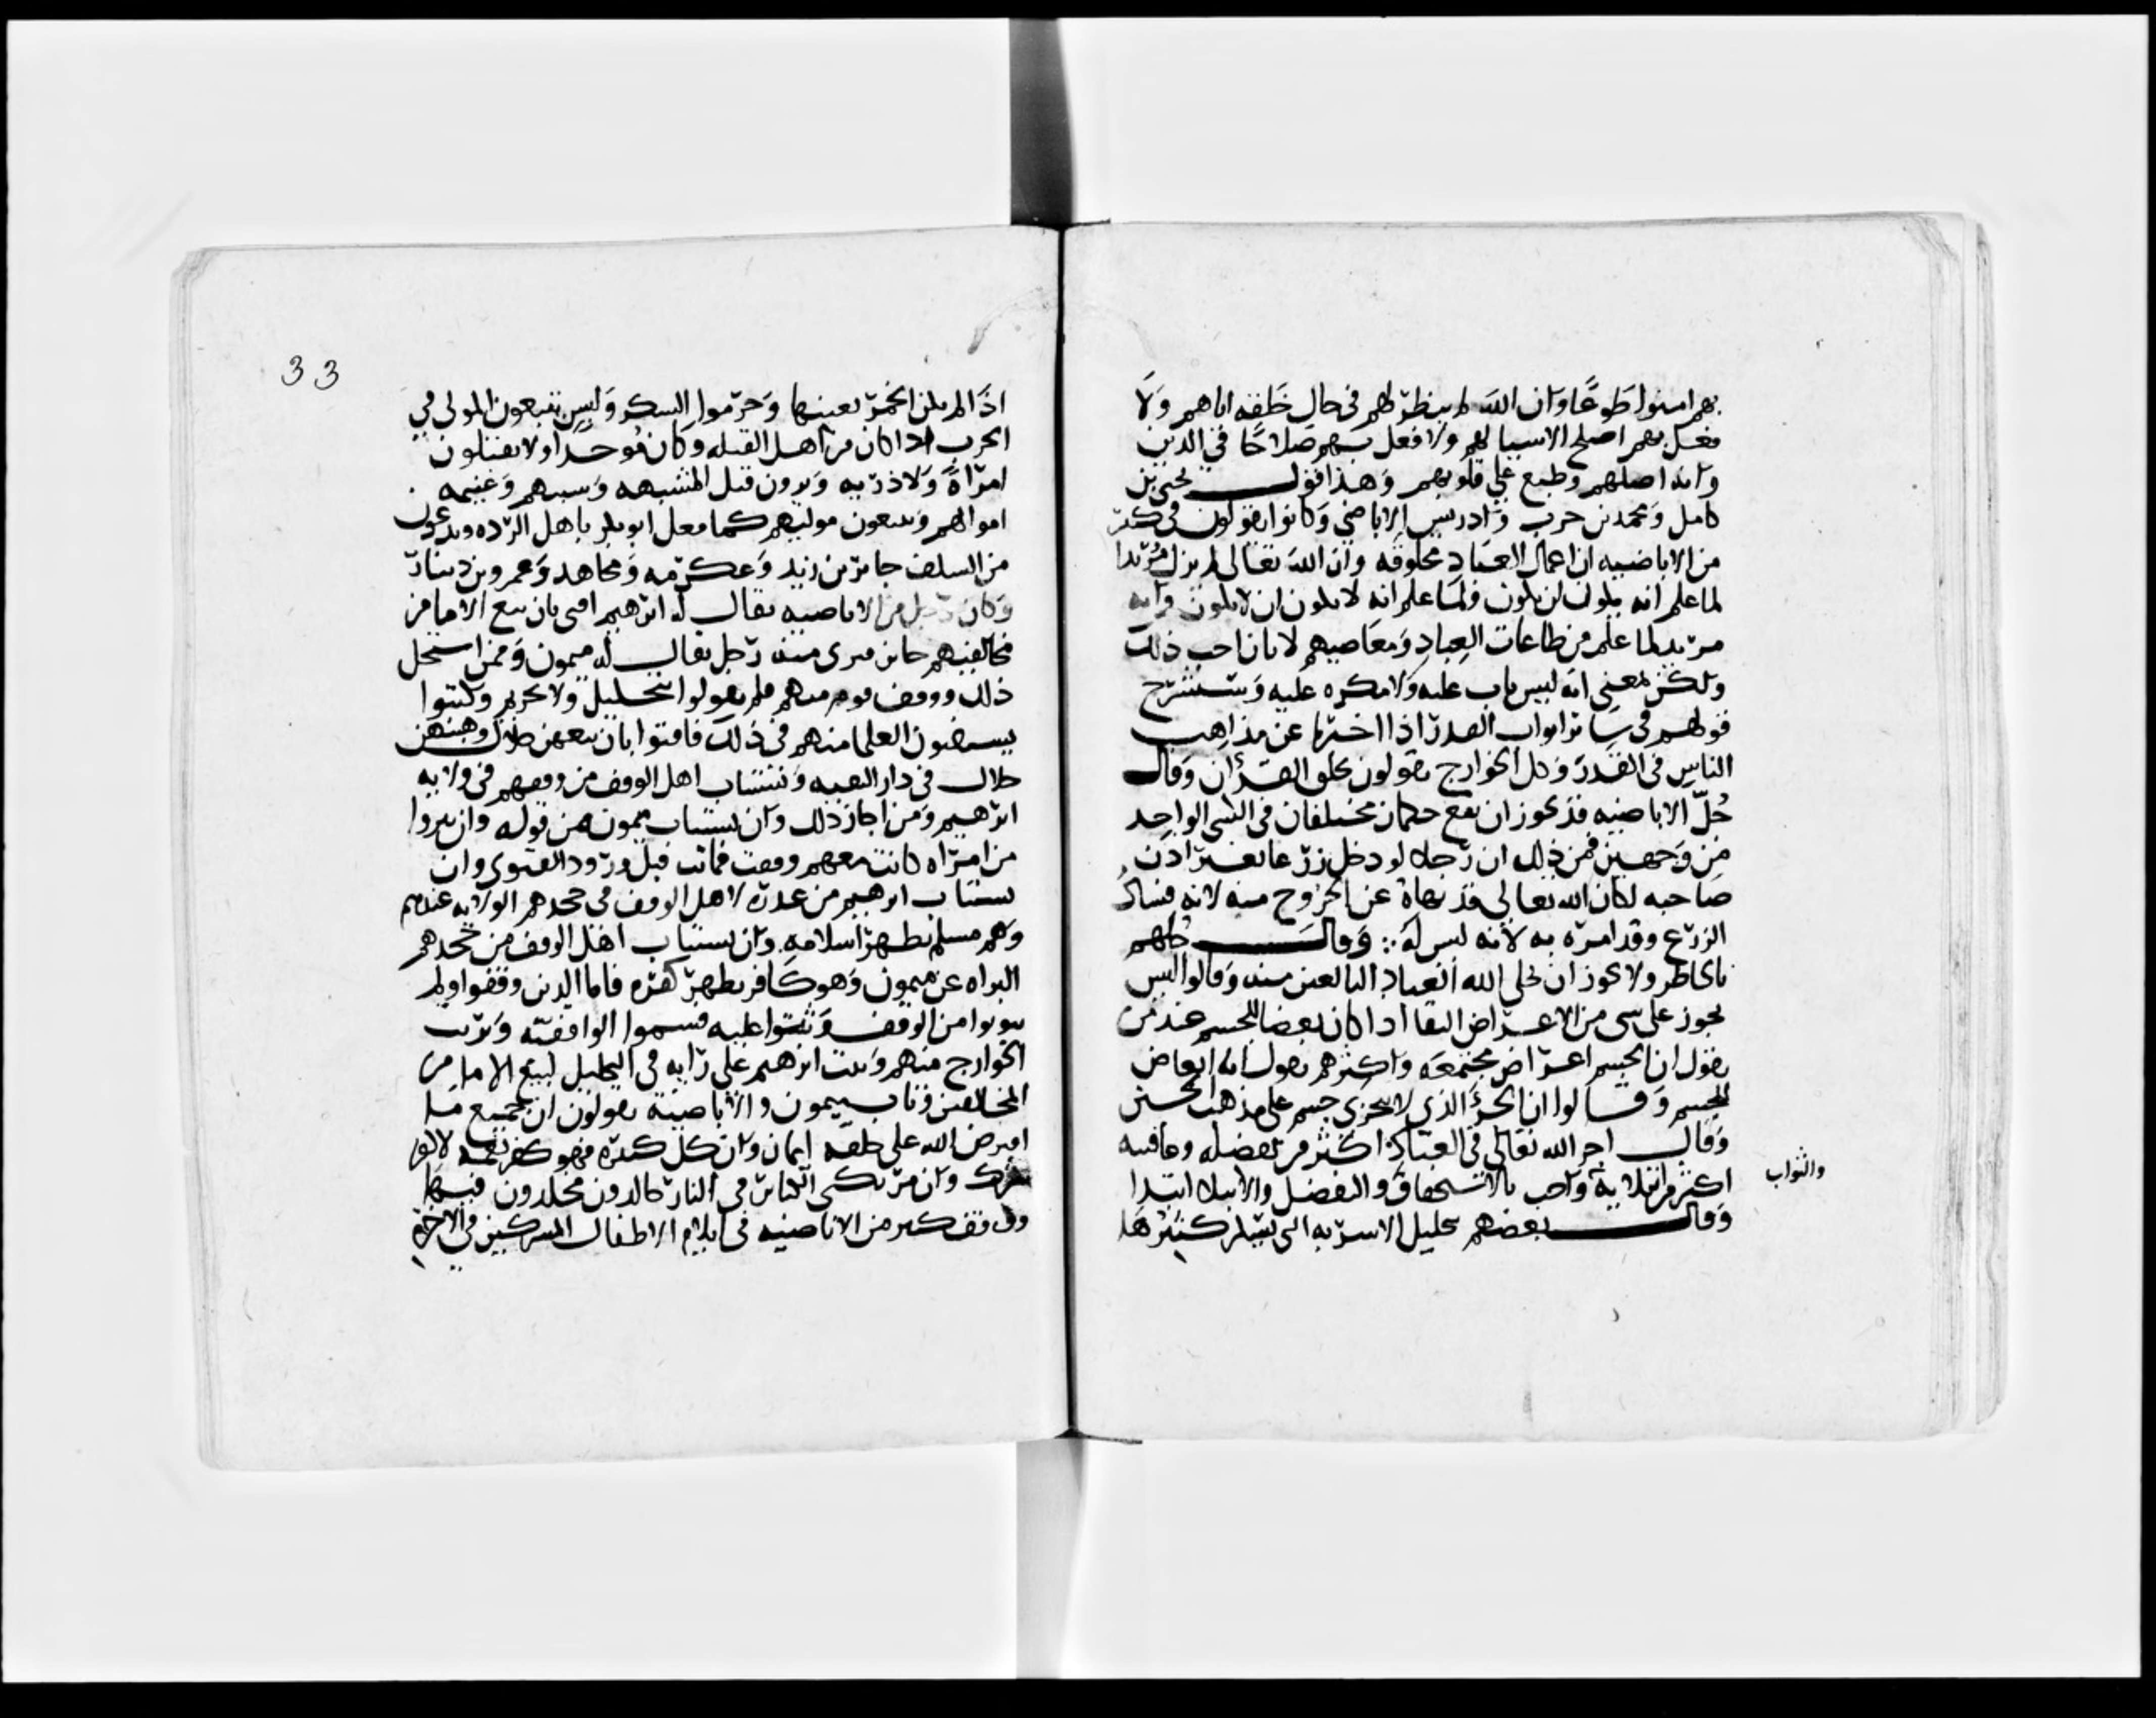 بهم امنوا طوعًا وان الله لم ينظر لهم في حال خلقه اياهم ولا
فعل بهم اصلح الاشيا لهم ولا فعل بهم صلاحًا في الدين
وانه اضلهم وطبع علي قلوبهم وهذا قول يحيى بن
كامل ومحمد بن حرب وادريس الاباضي وكانوا يقولون في كثير
من الاباضيه ان اعمال العباد مخلوقه وان الله تعالى لم يزل مريدا
لما علم انه يكون ان يكون ولما علم انه لا يكون ان لا يكون وانه
مريد لما علم من طاعات العباد ومعاصيهم لا بان احب ذلك
ولكن بمعنى انه ليس باب عليه ولا مكره عليه وسنشرح
قولهم في سائر ابواب القدر اذا اخبرنا عن مذاهب
الناس في القدر وكل الخوارج يقولون بخلق القرأن وقال
جُلّ الاباضيه قد يجوز ان يقع حكمان مختلفان في الشي الواحد
من وجهين فمن ذلك ان رجلا لو دخل زرعا بغير اذن
صاحبه لكان الله تعالى قد نهاه عن الخروج منه لانه فساد
الزرع وقد امره به لأنه ليس له ∴ وقال كلهم
بالخاطر ولا يجوز ان يخلي الله العباد البالغين منه وقالوا ليس
يجوز على شي من الاعراض البقا اذا كان بعضا للجسم عند من
يقول ان الجسم اعراض مجتمعه واكثرهم يقول انه ابعاض
للجسم وقالوا ان الجزؤ الذي لا يتجزى جسم على مذهب الحسين
وقال اجر الله تعالى في العباد اكثر من تفضله وعافيته
اكثر من ابتلايه واجب بالاستحقاق والتفضل والابتلا ابتدا
والثواب
وقال بعضهم بتحليل الاشربه التي يسكر كثيرها
33
اذا لم يكن الخمر بعينها وحرّموا السكر وليس يتبعون المولى في
الحرب اذا كان من اهل القبله وكان موحدا ولا يقتلون
امراةً ولا ذريه ويرون قتل المشبهه وسبيهم وغنيمه
اموالهم ويتبعون موليهم كما فعل ابو بكر باهل الرده ويدعون
من السلف جابر بن زيد وعكرمه ومجاهد وعمرو بن دينار
وكان رجل من الاباضيه يقال له ابرهيم افتى بان بيع الاما من
مخالفيهم جائز فبرى منه رجل يقال له ميمون وممن استحل
ذلك ووقف قوم منهم فلم يقولوا بتحليل ولا تحريم وكتبوا
يستفتون العلما منهم في ذلك فافتوا بان بيعهن حلال وهبتهن
حلال في دار التقيه ويستتاب اهل الوقف من وقفهم في ولايه
ابرهيم ومن اجاز ذلك وان يستتاب ميمون من قوله وان يبروا
من امراه كانت معهم وقفت فماتت قبل ورود الفتوى وان
يستتاب ابرهيم من عذره لاهل الوقف في جحدهم الولايه عنه
وهو مسلم يظهر اسلامه وان يستتاب اهل الوقف من جحدهم
البراه عن ميمون وهو كافر يظهر كفره فاما الذين وقفوا ولم
يتوبوا من الوقف وثبتوا عليه فسموا الواقفيّه وبريت
الخوارج منهم وثبت ابرهيم على رايه في التحليل لبيع الاما من
المخالفين وتاب ميمون والاباضيه يقولون ان جميع ما
افترض الله على خلقه ايمان وان كل كبيره فهو كفر نعمه لا كفر
شرك وان مرتكبي الكبائر في النار خالدون مخلدون فيها
ووقف كثير من الاباضيه في ايلام الاطفال المشركين في الاخرة